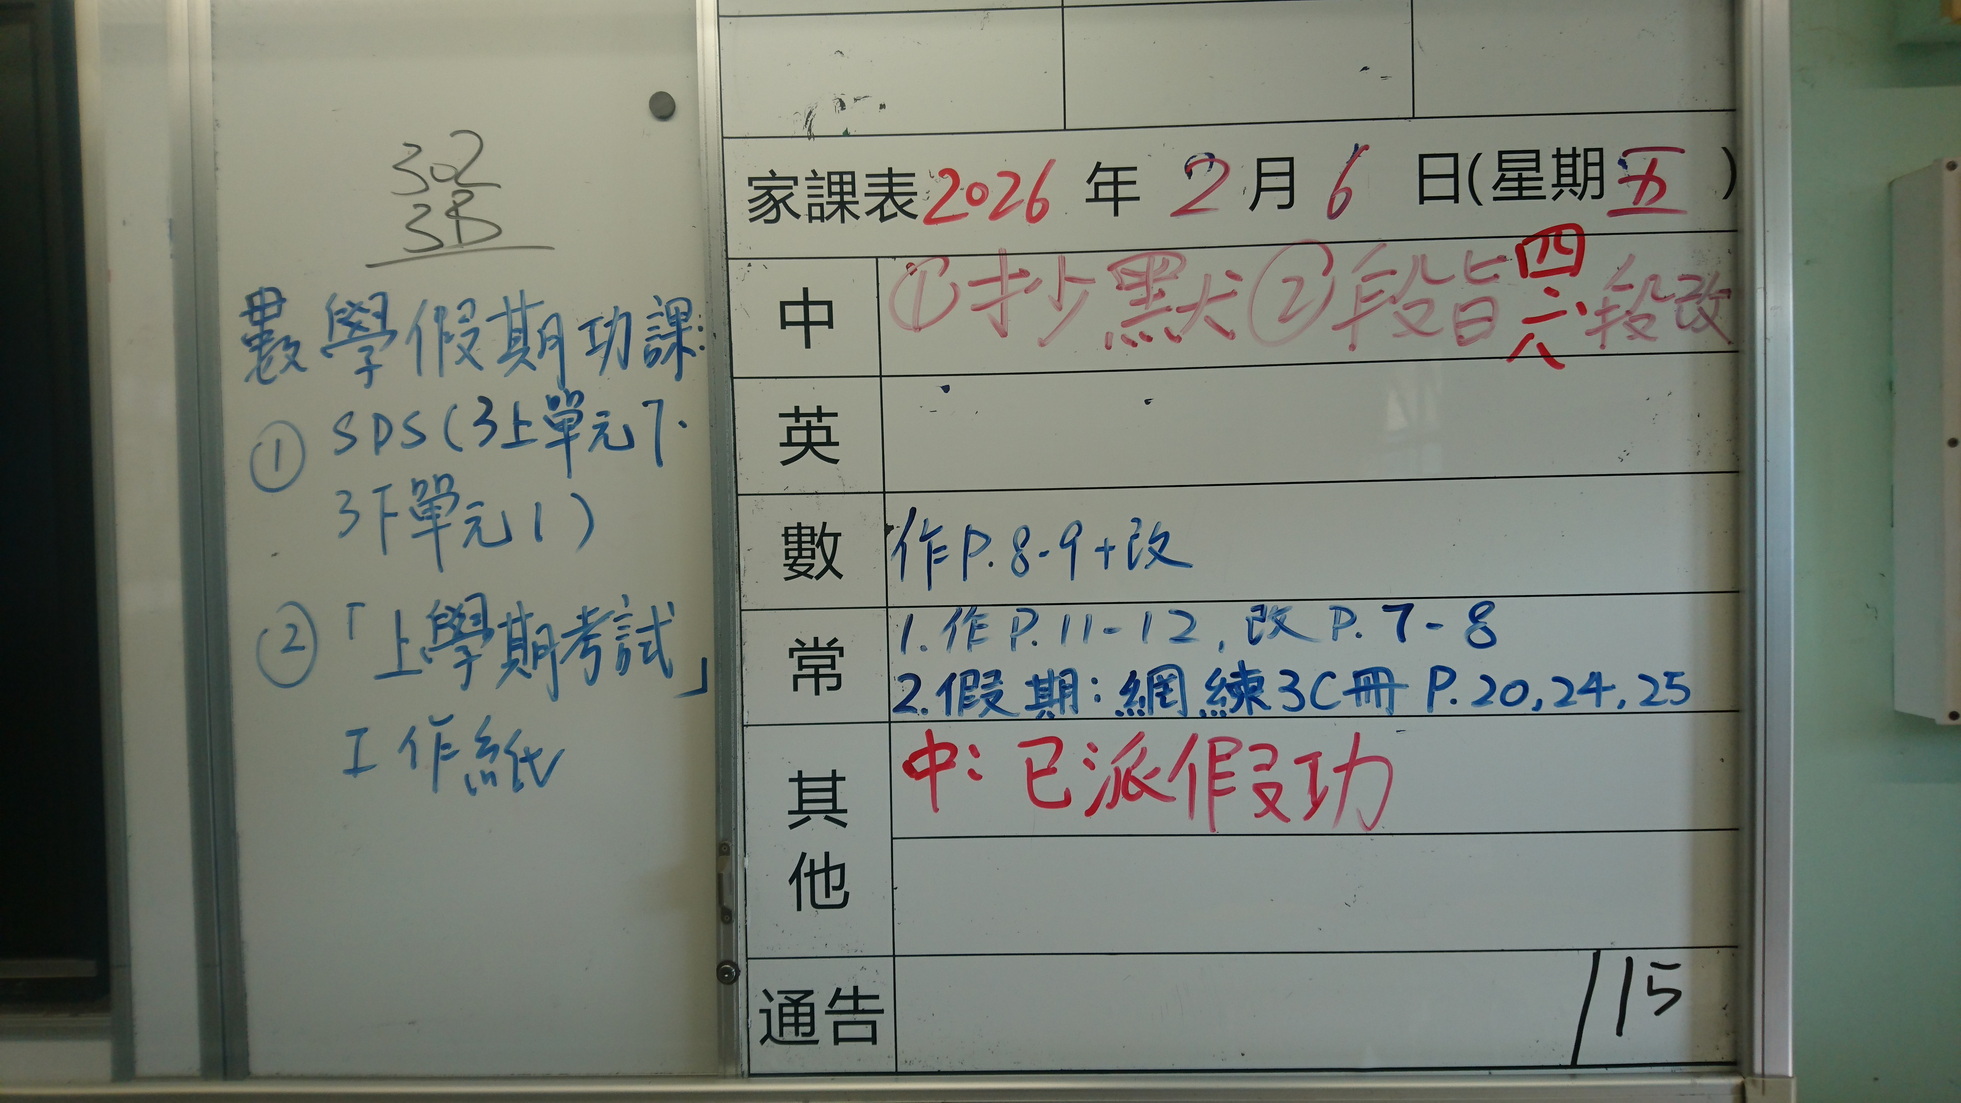 302
3B
數學假期功課:
① SDS(3上單元7.
3下單元1)
② 「上學期考試」
工作紙
家課表2026年2月6日(星期五)
中 ①抄默②段旨四六八段改
英
數 作P.8-9+改
常 1.作P.11-12,改P.7-8
2.假期:網練3C冊 P.20,24,25
其他 中:已派假功
通告 /15